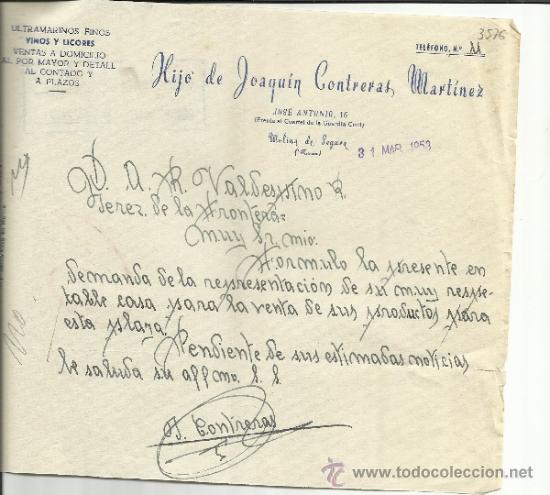 ULTRAMARINOS FINOS
VINOS Y LICORES
VENTAS A DOMICILIO
AL POR MAYOR Y DETALL
AL CONTADO Y
A PLAZOS
3576
TELÉFONO, N.º 11
Hijo de Joaquín Contreras Martínez
JOSÉ ANTONIO, 16
(Frente al Cuartel de la Guardia Civil)
Molina de Segura
(Murcia)
31 MAR. 1953
D. A. R. Valdespino
Jerez de la Frontera=
Muy Sr mio:
Formulo la presente en
demanda de la representación de su muy respe-
table casa para la venta de sus productos para
esta plaza.
Pendiente de sus estimadas noticias
le saluda su affmo. S. S.
Contreras
www.todocoleccion.net